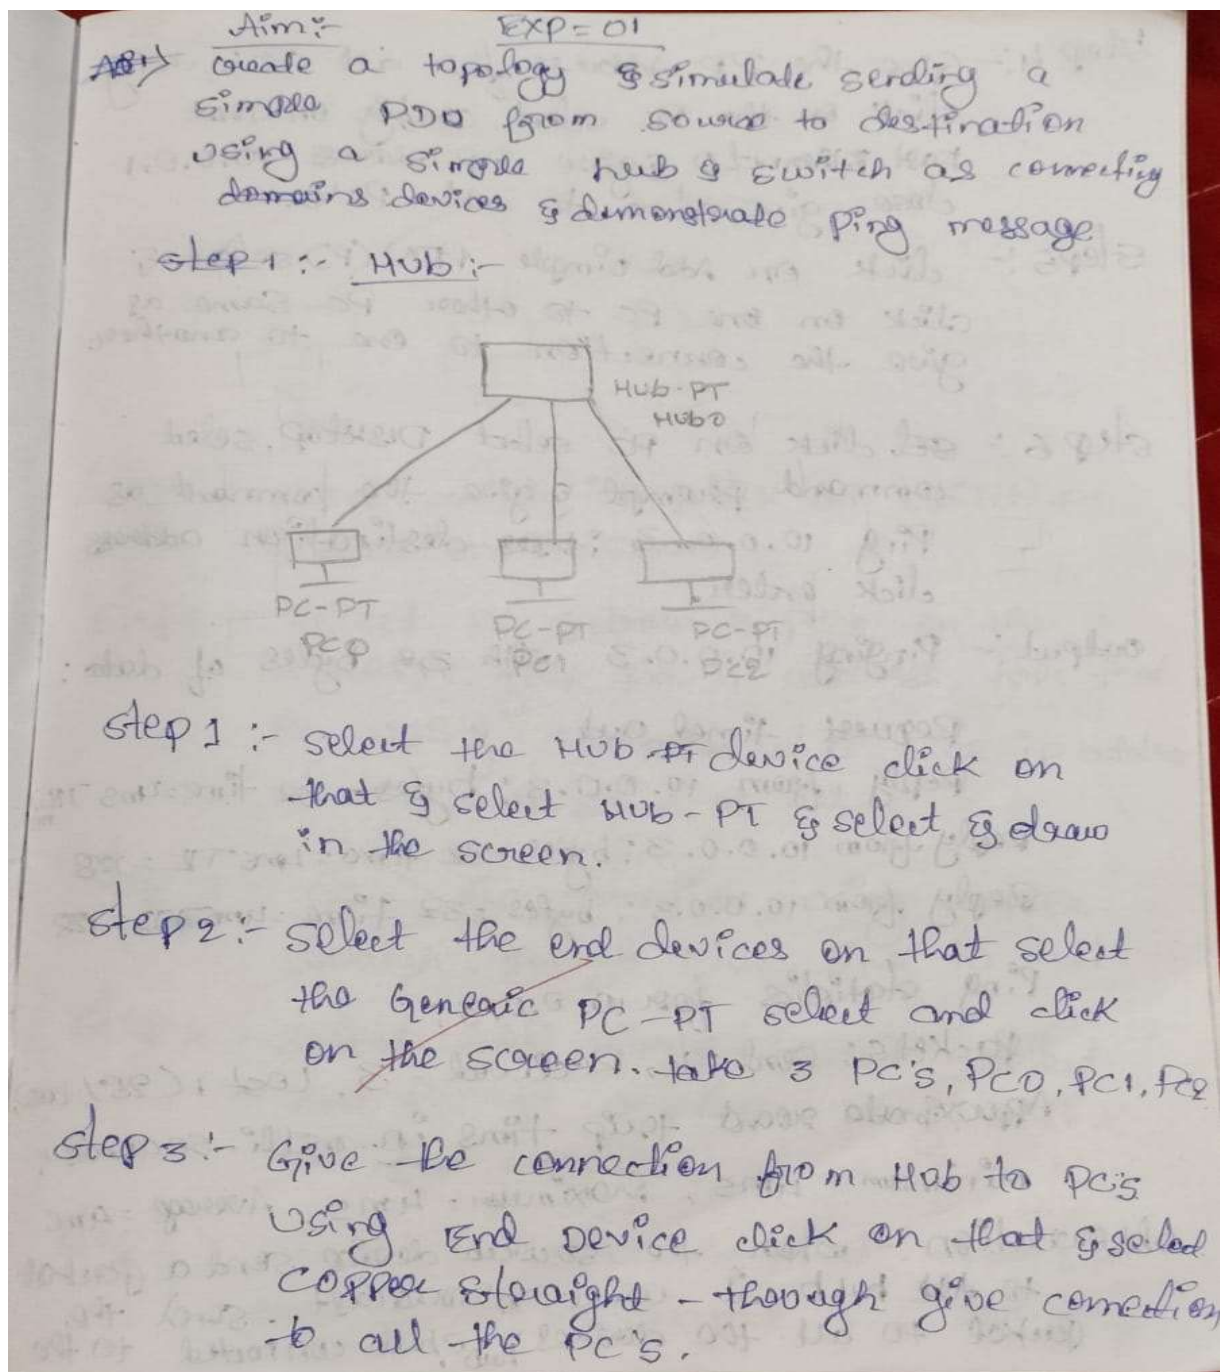 Aim:- EXP=01
create a topology & simulate sending a
simple PDU from source to destination
using a simple hub & switch as connecting
domains devices & demonstrate ping message
step 1 :- Hub :-
Hub-PT
Hub0
PC-PT
PC0
PC-PT
PC1
PC-PT
PC2
step 1 :- select the Hub-PT device click on
that & select Hub-PT & select & draw
in the screen.
step 2 :- select the end devices on that select
the Generic PC-PT select and click
on the screen. take 3 PC's, PC0, PC1, PC2
step 3 :- Give the connection from Hub to PC's
using End Device click on that & select
copper straight-through give connection
to all the PC's.